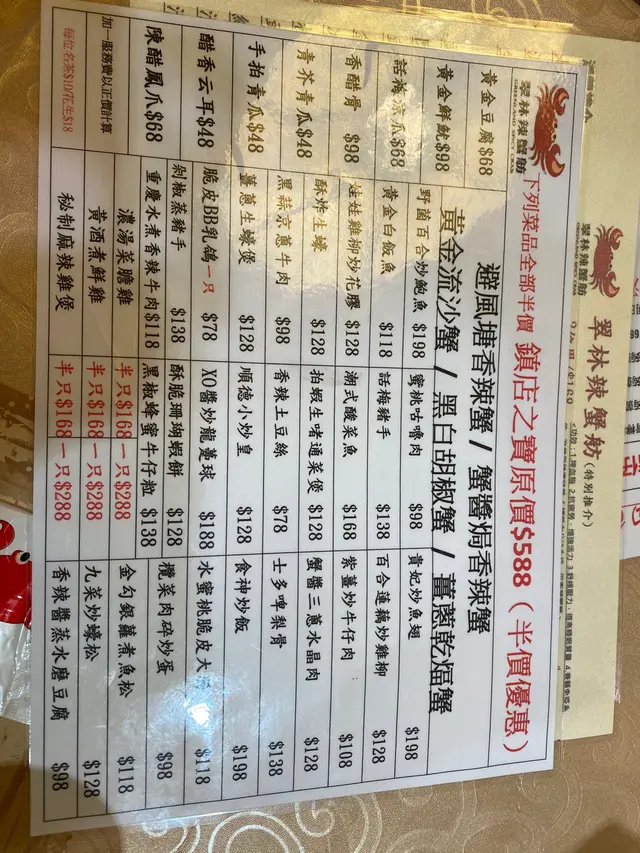 翠林辣蟹舫
GREENLAND SPICY CRAB
下列菜品全部半價 鎮店之寶原價$588（半價優惠）
避風塘香辣蟹 / 蟹醬焗香辣蟹
黃金流沙蟹 / 黑白胡椒蟹 / 薑蔥乾煏蟹
黃金豆腐$68
黃金鮮魷$98
話梅涼瓜$68
香酷骨 $98
青芥青瓜$48
手拍青瓜$48
酷香云耳$48
陳酷鳳爪$68
加一服務費以正價計算
每位名茶$10/花生$18
野菌百合炒鮑魚 $198
蜜桃咕嚕肉 $98
貴妃炒魚翅 $198
黃金白飯魚 $118
話梅豬手 $138
百合蓮藕炒雞柳 $128
娃娃雞柳炒花膠 $128
潮式酸菜魚 $168
紫薑炒牛仔肉 $108
酥炸生蠔 $128
拍蝦生啫通菜煲 $128
蟹醬三蔥水晶肉 $128
黑蒜京蔥牛肉 $98
香辣土豆絲 $78
士多啤梨骨 $138
薑蔥生蠔煲 $128
順德小炒皇 $128
食神炒飯 $198
脆皮BB乳鴿一只 $78
XO醬炒龍躉球 $188
水蜜桃脆皮大 $118
剁椒蒸豬手 $138
酥脆珊瑚蝦餅 $128
欖菜肉碎炒蛋 $98
重慶水煮香辣牛肉$118
黑椒蜂蜜牛仔粒 $138
金勾銀蘿煮魚松 $118
濃湯菜膽雞 半只$168 一只$288
九菜炒蠔松 $128
黃酒煮鮮雞 半只$168 一只$288
香辣醬蒸水磨豆腐 $98
秘制麻辣雞煲 半只$168 一只$288
翠林辣蟹舫
翠林辣蟹舫(特別推介)